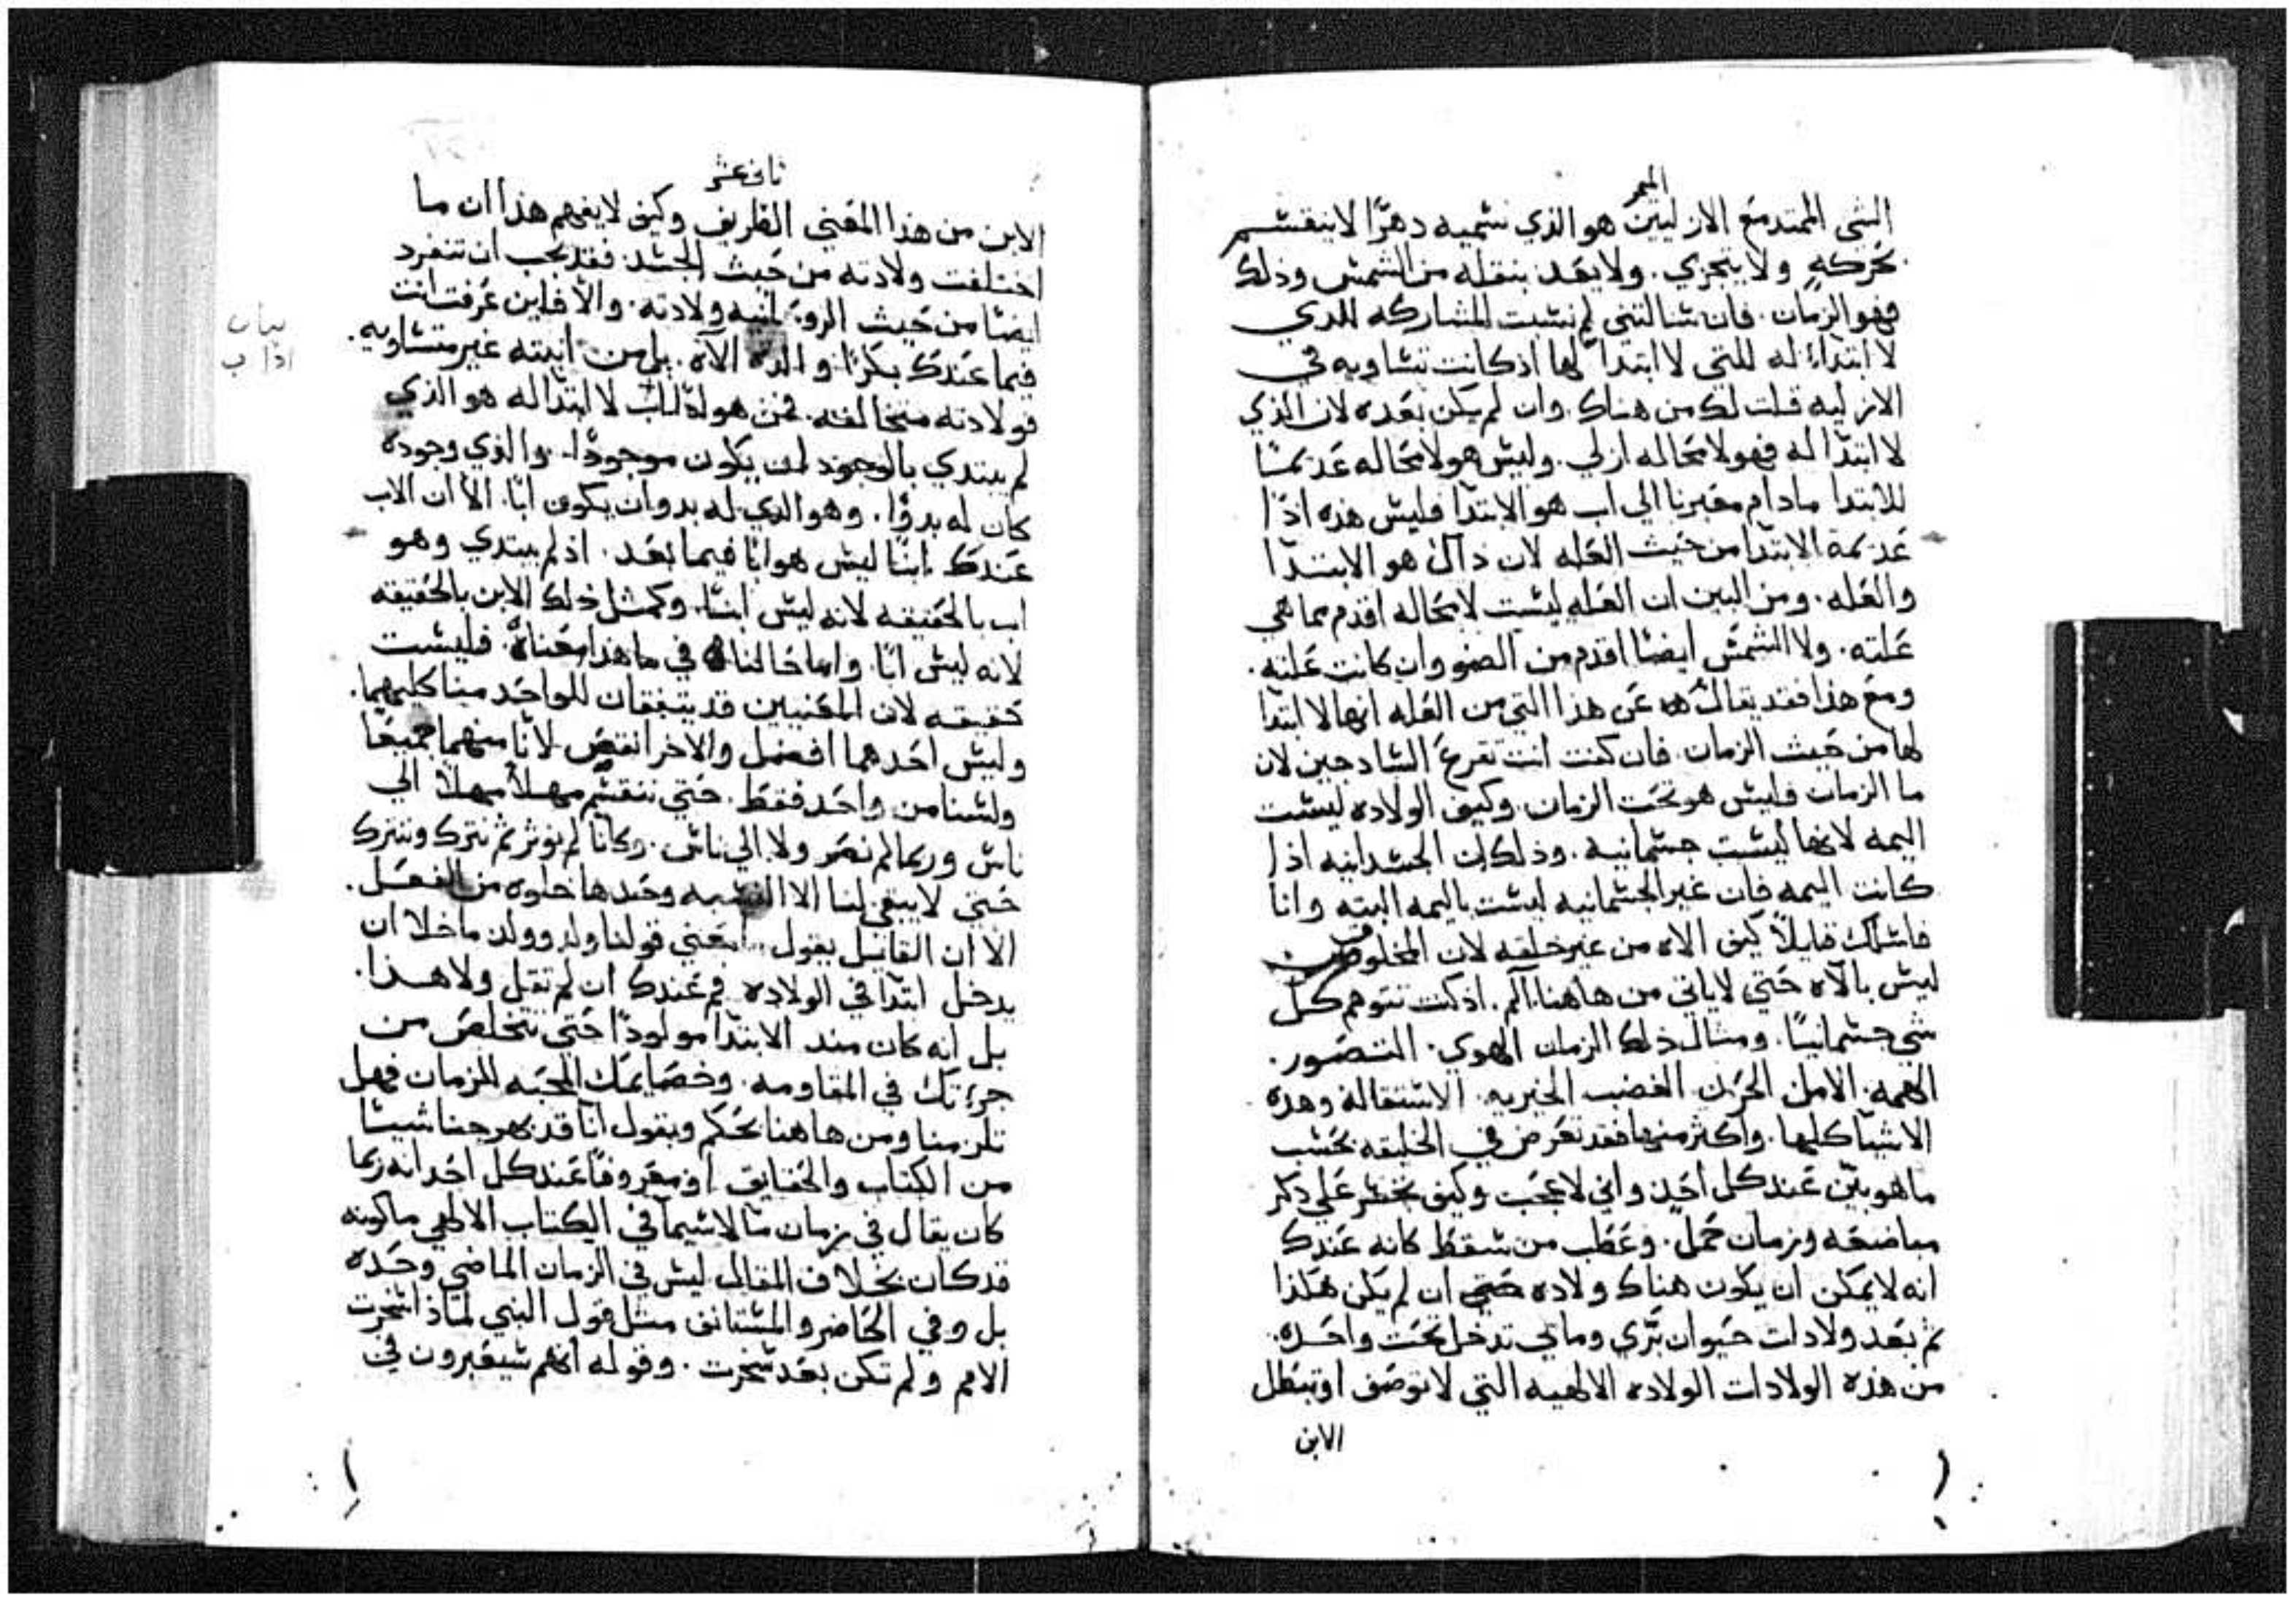 الميمر
الشي الممتد مع الازليين هو الذي نسميه دهرًا لاينقسم
بحركه ولا يتجزي. ولايعد بنقله من الشمس وذلك
فهو الزمان. فان سالتني لم نسبت المشاركه الذي
لا ابتداء له للتي لا ابتدا لها اذ كانت تساويه في
الازليه قلت لك من هناك. وان لم يكن بعده لان الذي
لا ابتدا له فهو لامحاله ازلي. وليس هو لامحاله عديمًا
للابتدا مادام مخبرنا الي اب هو الابتدا فليس هذه اذًا
عديمة الابتدا من حيث العله لان ذاك هو الابتدا
والعله. ومن البين ان العله ليست لامحاله اقدم مما هي
علته. ولا الشمس ايضًا اقدم من الضو وان كانت علته.
ومع هذا فقد يقال عن هذا التي من العله انها لا ابتدا
لها من حيث الزمان. فان كنت انت تفزع السادجين لان
ما الزمان فليس هو تحت الزمان. وكيف الولاده ليست
اليمه لانها ليست جسمانيه. وذلك ان الجسدانيه اذا
كانت اليمه فان غير الجسمانيه ليست باليمه البته وانا
فاسالك قايلاً كيف الاه من غير خلقه لان المخلوق
ليس بالاه حتي لاياتي من هاهنا الم. اذ كنت تتوهم كل
شي جسمانيًا. ومثال ذلك الزمان الهوي. التصور.
الهمه. الامل الحزن الغضب الخبريه. الاستقاله وهذه
الاشيا كلها. واكثر منها فقد تعرض في الخليقه بحسب
ماهو بين عند كل احد واني لاعجب وكيف تجسر علي ذكر
مباضعه وزمان حمل. وعطب من سقط كانه عندك
انه لايمكن ان يكون هناك ولاده حتي ان لم يكن هكذا
ثم بعد ولادات حيوان بري ومائي تدخل تحت واحده.
من هذه الولادات الولاده الالهيه التي لاتوصف اوتبطل
الابن
ثاني عشر
الابن من هذا المعني الظريف وكيف لايفهم هذا ان ما
اختلفت ولادته من حيث الجسد فقد يجب ان تنفرد
ايضًا من حيث الروحانيه ولادته. والا فاين عرفت انت
فيما عندك بكرًا والدة الاه. بل من ابنته غير متساويه.
فولادته متخالفه. فمن هو له اب لا ابتدا له هو الذي
لم يبتدي بالوجود لمن يكون موجودًا. والذي وجوده
كان له بدوًا. وهو الذي له بدو ان يكون ابًا. الا ان الاب
عندك ابنًا ليس هو ابًا فيما بعد. اذ لم يبتدي وهو
اب بالحقيقه لانه ليس ابنًا. وكمثل ذلك الابن بالحقيقه
لانه ليس ابًا. واما حالنا في ما هذا معناه. فليست
حقيقه لان المعنيين قد يتفقان للواحد منا كليهما.
وليس احدهما افضل والاخر انقص. لانا منهما جميعًا
ولسنا من واحد فقط. حتي ننقسم مهلاً مهلاً الي
ناس وربما لم نصر ولا الي ناس. وكانا لم نوثر ثم نترك ونترك
حتي لايبقي لنا الا النسبه وحدها خلوه من الفعل.
الا ان القائل يقول معني قولنا ولد وولد ماخلا ان
يدخل ابتدا في الولاده فم عندك ان لم تقل ولا هذا.
بل انه كان منذ الابتدا مولودًا حتي نتخلص من
جرءتك في المقاومه. وخصايمك المحبه للزمان فهل
تلزمنا ومن هاهنا تحكم وبقول انا قد بهرجنا شيئًا
من الكتاب والحقايق او معروفًا عند كل احد انه ربما
كان يقال في زمان ما لاسيما في الكتاب الالهي ماكونه
قد كان بخلاف المقال ليس في الزمان الماضي وحده
بل وفي الحاضر والمستانف مثل قول النبي لماذا اتجرت
الامم ولم تكن بعد سخرت. وقوله انهم سيعبرون في